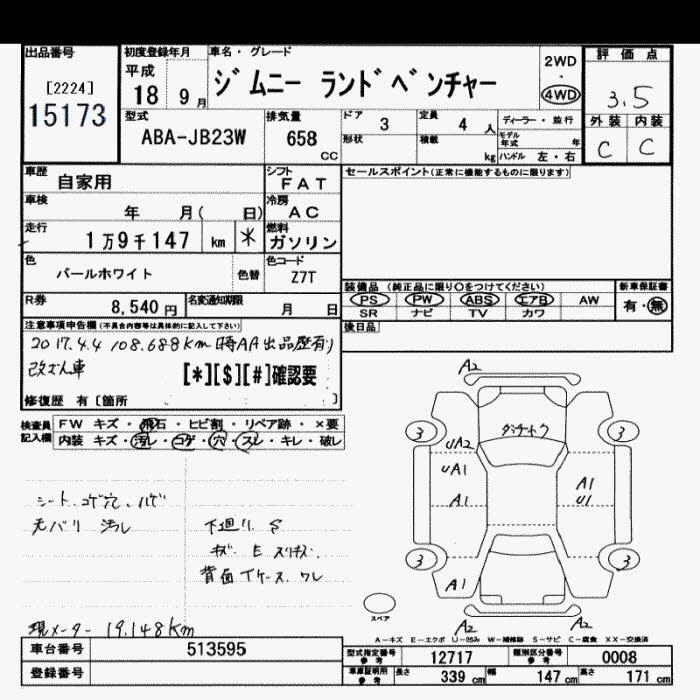 出品番号
[2224]
15173
初度登録年月
平成
18 9 月
車名・グレード
ジムニー ランドベンチャー
2WD
・
4WD
評価点
3.5
外装 内装
C C
型式
ABA-JB23W
排気量
658
CC
ドア 3
定員 4 人
形状
積載 kg
ディーラー・並行
モデル年式 年
ハンドル 左・右
車歴
自家用
シフト
FAT
車検
年 月( 日)
冷房
AC
走行
1万9千147 km *
燃料
ガソリン
色
パールホワイト
色替
色コード
Z7T
R券
8,540 円
名変通知期限
月 日
セールスポイント(正常に機能するものに限ります)
装備品 (純正品に限り○をつけてください)
PS PW ABS エアB AW
SR ナビ TV カワ
新車保証書
有・無
後日品
注意事項申告欄(不具合内容等は具体的に記入して下さい)
2017.4.4 108.688Km時AA出品歴有り
改ざん車
[*][$][#]確認要
修復歴 有〔箇所 〕
検査員記入欄
FW キズ・飛石・ヒビ割・リペア跡・×要
内装 キズ・汚レ・コゲ・穴・スレ・キレ・破レ
シート コゲ穴、ハゲ
天バリ 汚レ
下廻り S
キズ E スリキズ
背面Tケース ワレ
現メーター 19.148Km
A2
3 3
ダッシュ
UA2
UA1
A1
A1
U1
3 3
A1
A2
A2
スペア
A-キズ E-エクボ U-凹み W-補修跡 S-サビ C-腐食 XX-交換済
車台番号
513595
登録番号
型式指定番号
参考
12717
類別区分番号
参考
0008
車庫証明用
参考
長さ 339 cm 幅 147 cm 高さ 171 cm